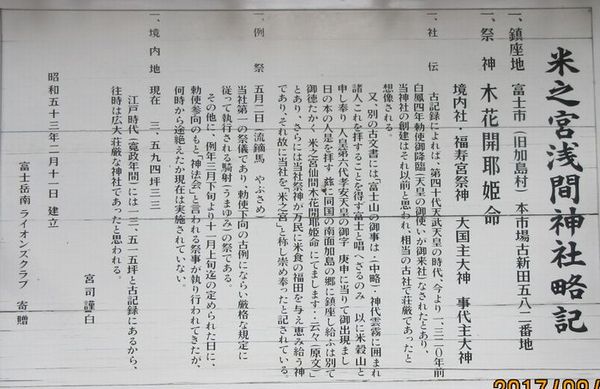 米之宮浅間神社略記
一、鎮座地 富士市(旧加島村)本市場古新田五八二番地
一、祭 神 木花開耶姫命
境内社・福寿宮祭神 大国主大神 事代主大神
一、社 伝
古記録によれば、第四十代天武天皇の時代、今より一三二〇年前
白鳳四年勅使御降臨(天皇の御使いが御来社)なされたとあり、
当神社の創建はそれ以前と思われ、相当の古社で荘厳であったと
想像される。
又、別の古文書には「富士山の御事は(中略)・神代雲霧に囲まれ
諸人これを拝することを得ず富士と唱へさるのみ 以に米穀山と
申し奉り 人皇第六代孝安天皇の御字 庚申に当りて御出現まし
日の本の人是を拝す 茲に同国の南面加島の郷に鎮座し給ふは別て
御徳たかく 米之宮仙間木花開耶姫命 にてまします・・云々(原文)」
とあり、さらには当社祭神が万民に米食の福田を与え恵み給う神
であり、それ故に当社を「米之宮」と称し崇め奉ったと記されている。
一、例 祭 五月二日 流鏑馬 やぶさめ
当社第一の祭儀であり、勅使下向の古例にならい厳格な規定に
従って執行される騎射(うまゆみ)の祭である。
その他に、例年三月下旬より十一月上旬迄の定められた日に、
勅使参向のもと「神法会」と言われる祭事が執り行われてきたが、
何時から途絶えたか現在は実施されていない。
一、境内地 現在 三、五九四坪三三
江戸時代(寛政年間)には一三、五一五坪と古記録にあるから、
往時は広大荘厳な神社であったと思われる。
宮 司 謹 白
昭和五十三年二月十一日 建立
富士岳南 ライオンスクラブ 寄贈